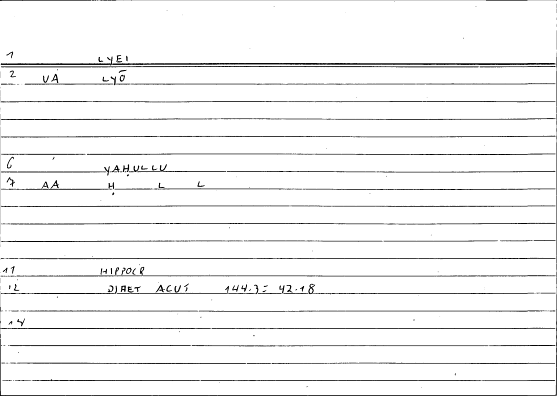 1 LYEI
2 VA LYŌ
6 YAḤULLU
7 AA Ḥ L L
11 HIPPOCR
12 DIAET ACUT 144.3 = 42.18
14